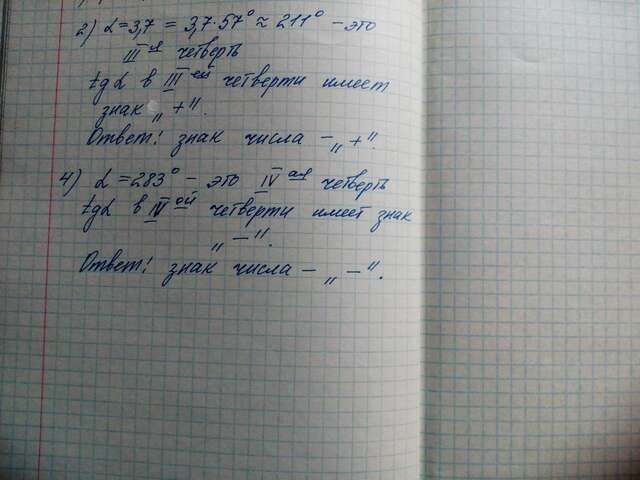 2) α = 3,7 = 3,7·57° ≈ 211° – это
III ая четверть
tgα в III ей четверти имеет
знак „+".
Ответ: знак числа – „+".
4) α = 283° – это IV ая четверть
tgα в IV ой четверти имеет знак
„–".
Ответ: знак числа – „–".